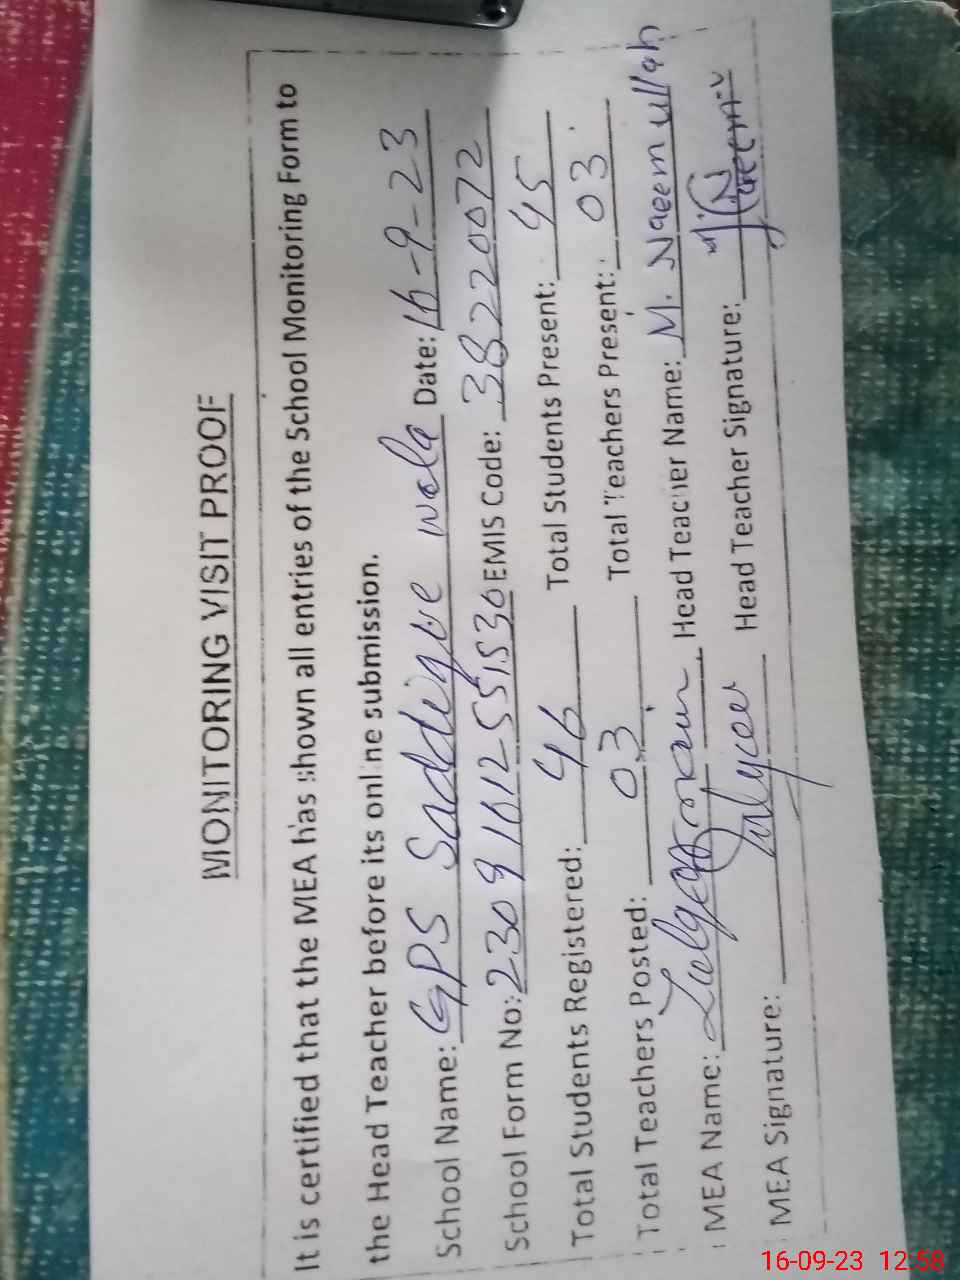 MONITORING VISIT PROOF
It is certified that the MEA has shown all entries of the School Monitoring Form to
the Head Teacher before its online submission.
School Name: GPS Saddique wala Date: 16-9-23
School Form No: 23091612551530 EMIS Code: 38220072
Total Students Registered: 46 Total Students Present: 45
Total Teachers Posted: 03 Total Teachers Present: 03
MEA Name: Head Teacher Name: M. Naeem ullah
MEA Signature: Head Teacher Signature:
16-09-23 12:58